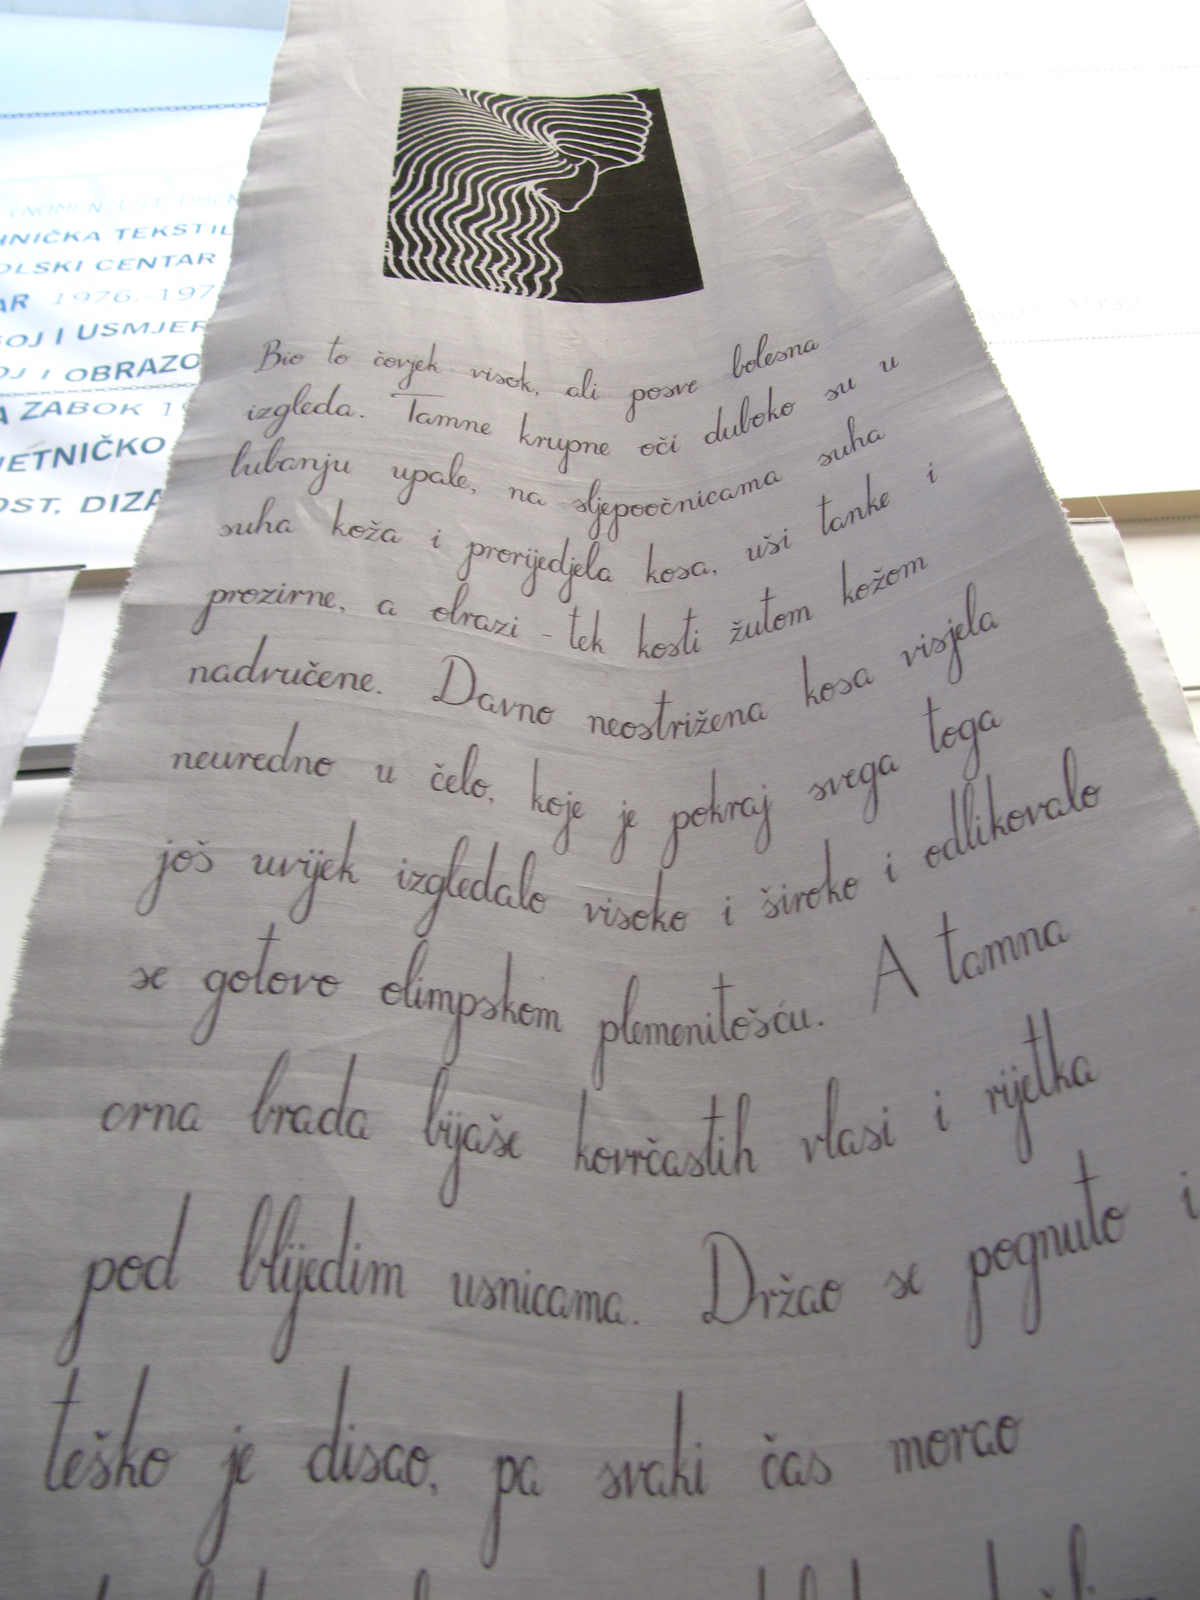 Bio to čovjek visok, ali posve bolesna
izgleda. Tamne krupne oči duboko su u
lubanju upale, na sljepoočnicama suha
suha koža i prorijedjela kosa, uši tanke i
prozirne, a obrazi - tek kosti žutom kožom
nadvučene. Davno neostrižena kosa visjela
neuredno u čelo, koje je pokraj svega toga
još uvijek izgledalo visoko i široko i odlikovalo
se gotovo olimpskom plemenitošću. A tamna
crna brada bijaše kovrčastih vlasi i rijetka
pod blijedim usnicama. Držao se pognuto i
teško je disao, pa svaki čas morao
HNIČKA TEKSTIL
OLSKI CENTAR
AR 1976.-197
GOJ I USMJER
OJ I OBRAZO
A ZABOK 19
JETNIČKO
OST, DIZA